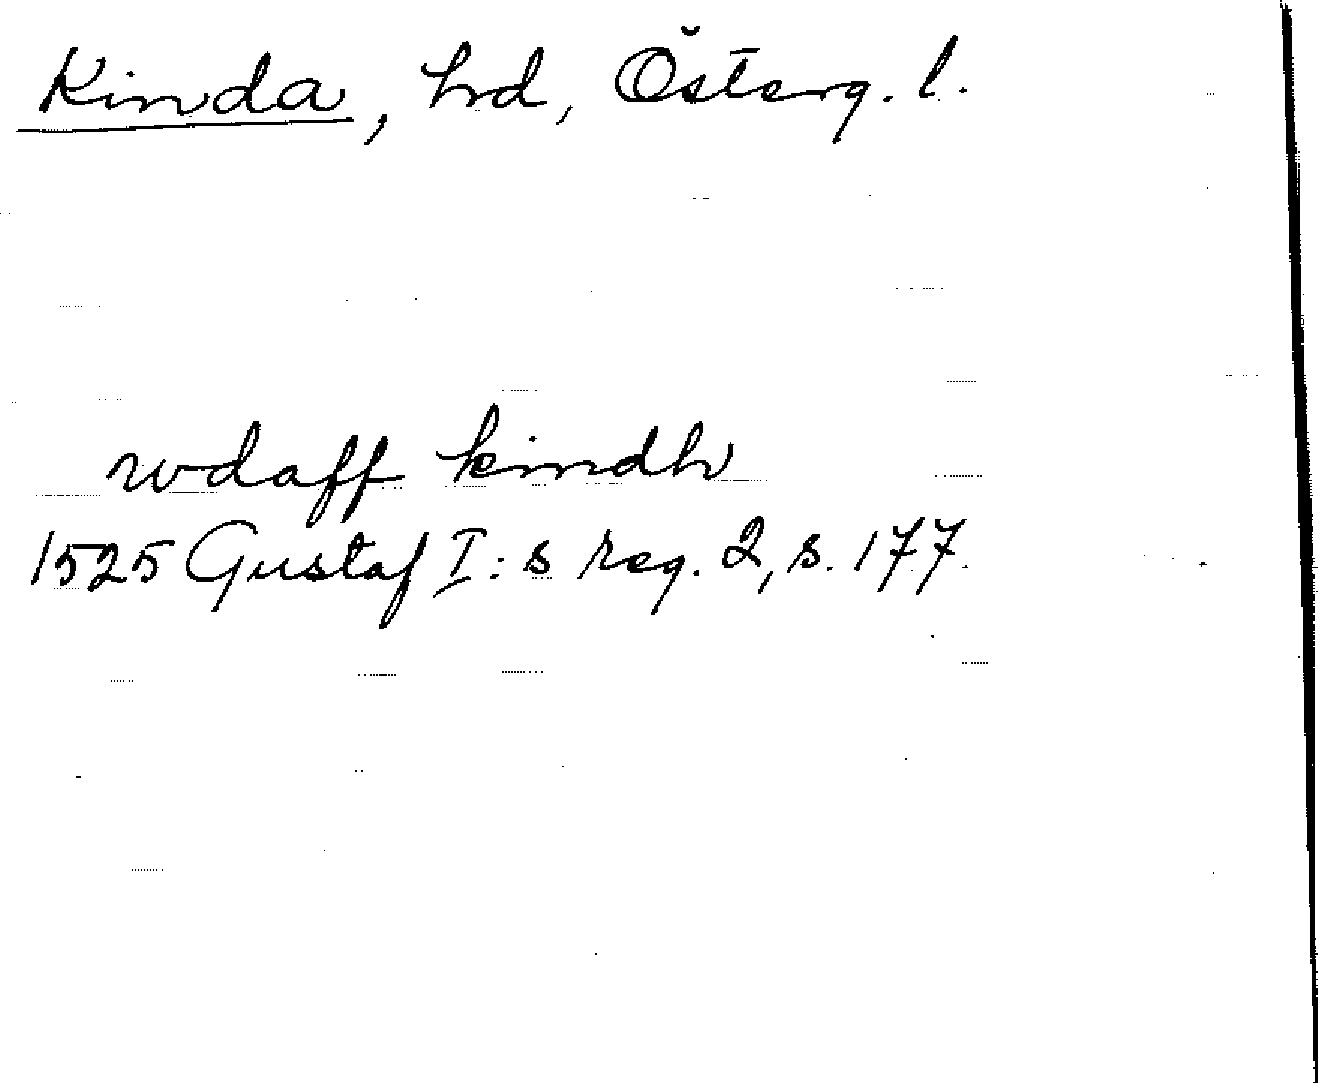 Kinda, hd, Österg. l.
wdaff kindh
1525 Gustaf I:s reg. 2, s. 177.